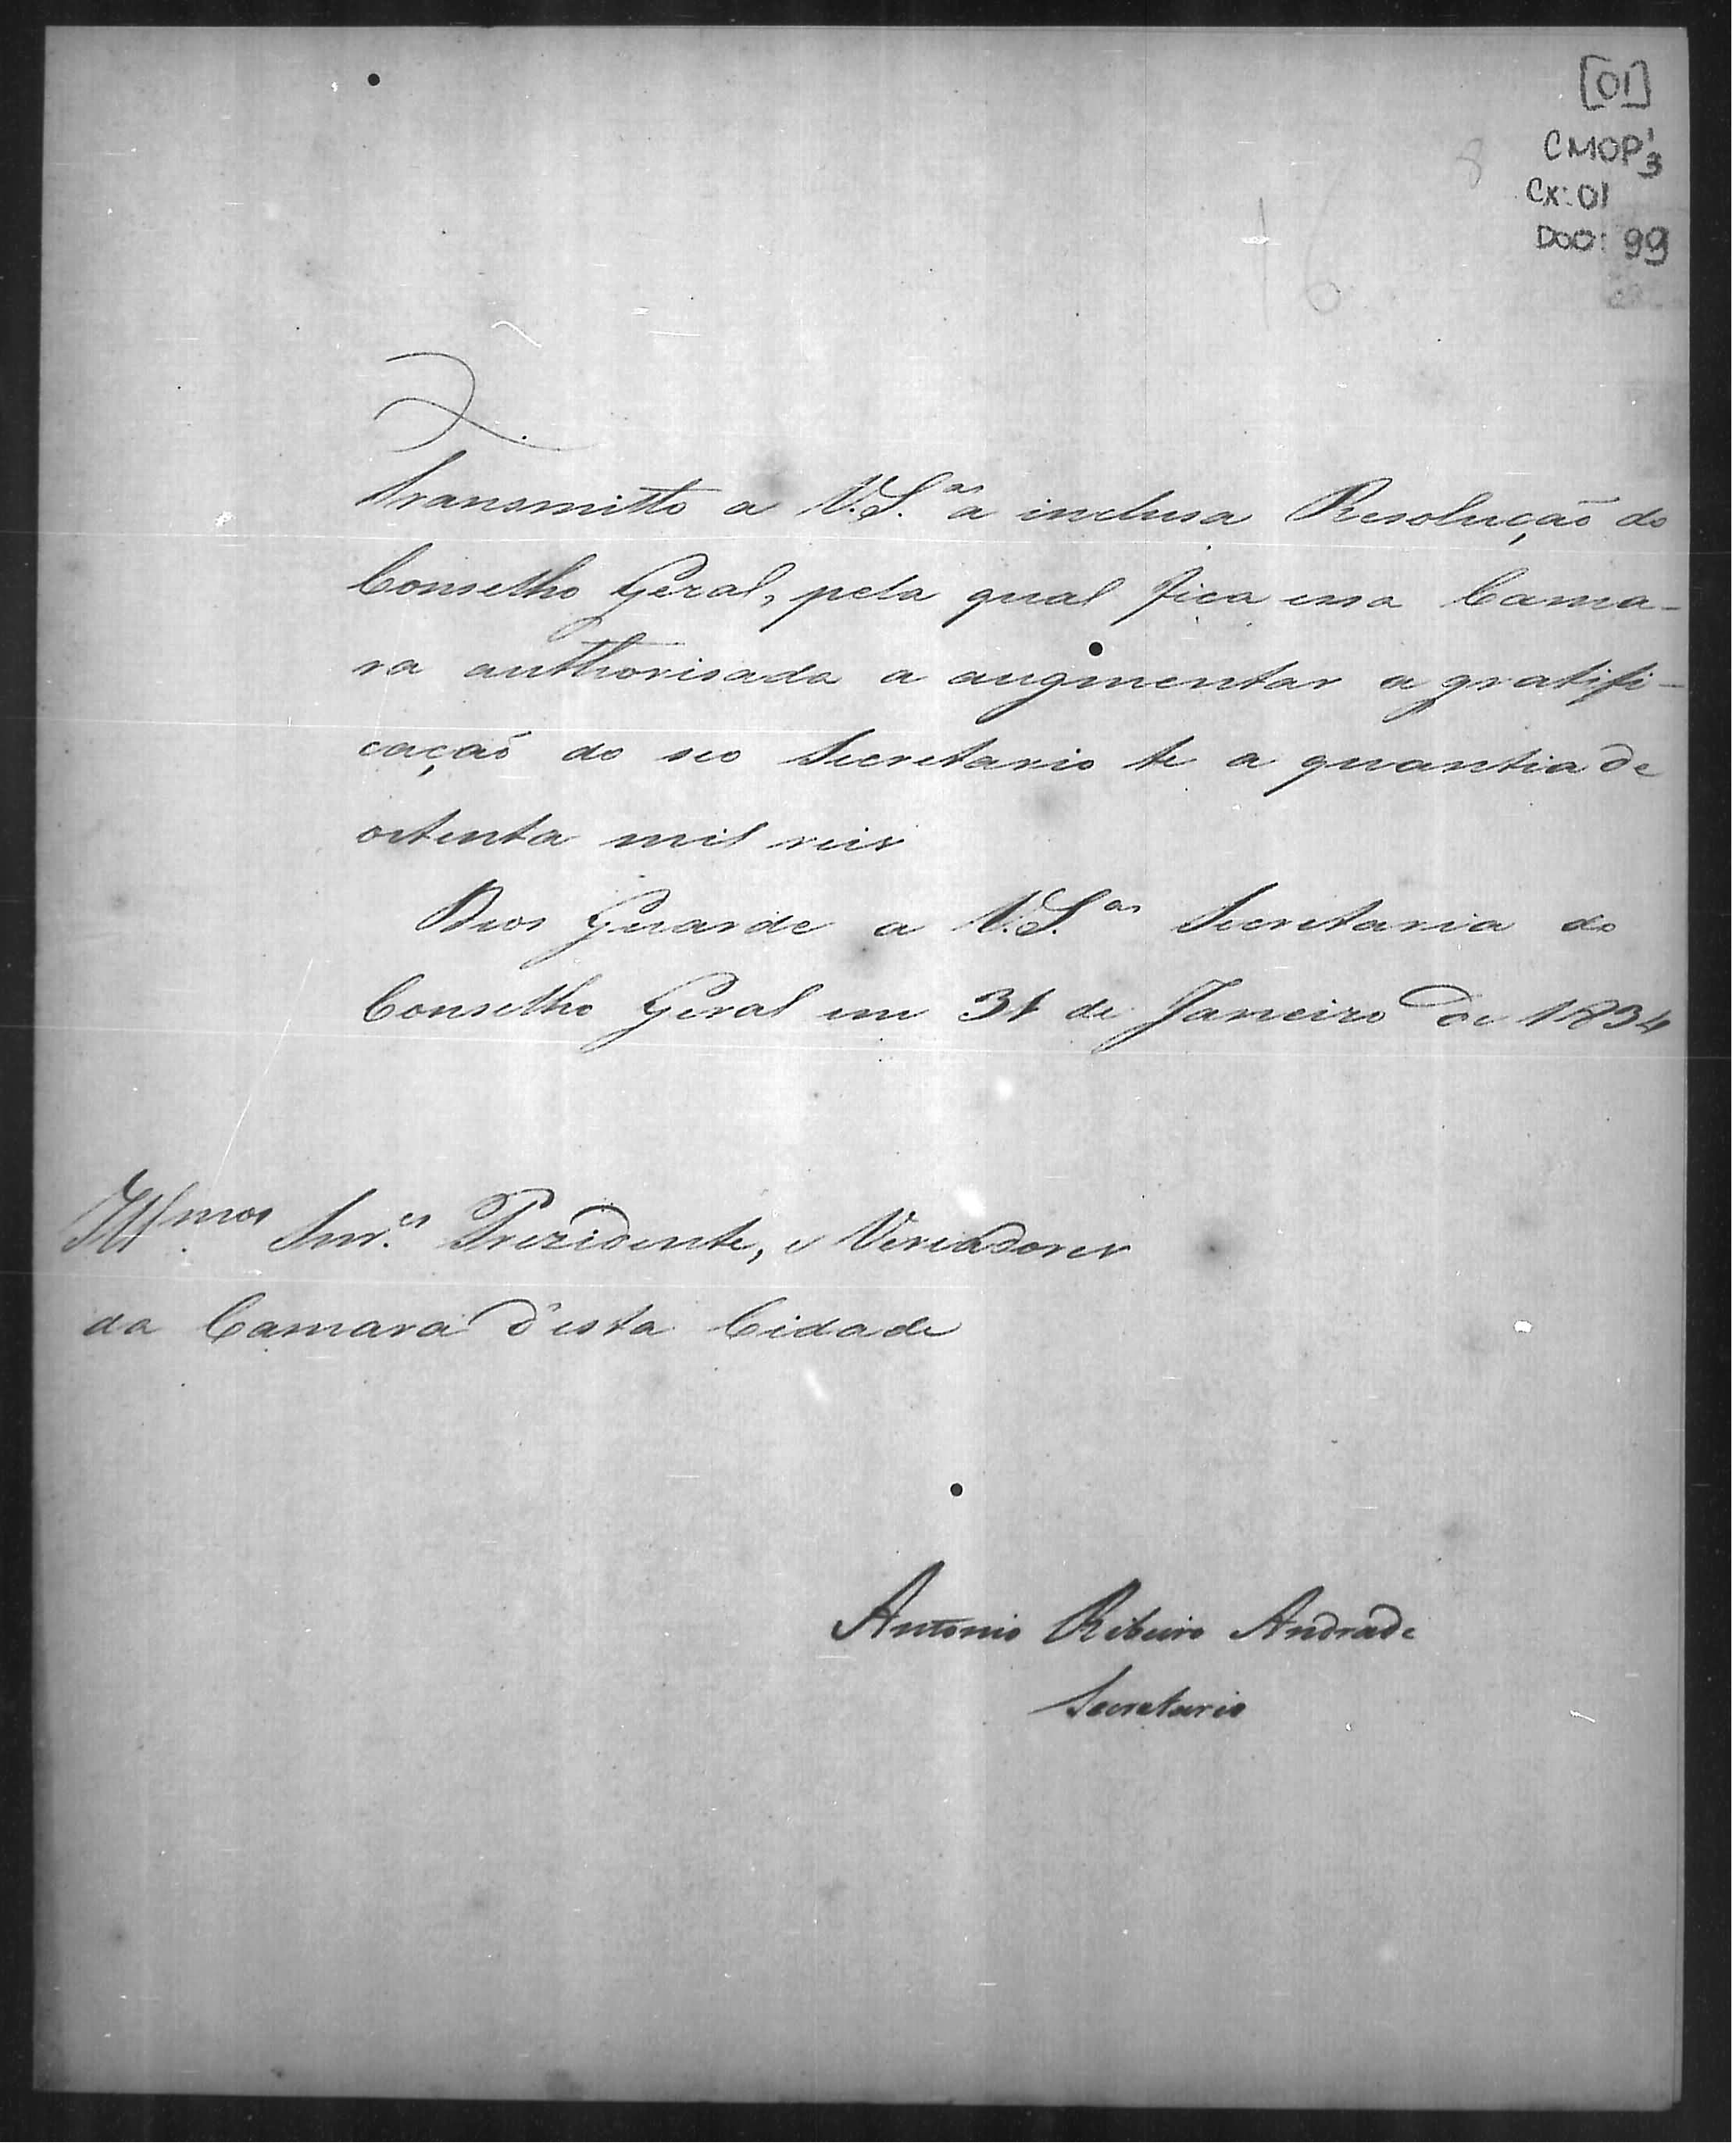 [01]
CMOP 1/3
Cx: 01
DOC: 99
16
Transmitto a V.S.as a inclusa Resolução do
Conselho Geral, pela qual fica essa Cama-
ra authorisada a augmentar a gratifi-
cação do seo Secretario te a quantia de
oitenta mil reis
Deos Guarde a V.S.as Secretaria do
Conselho Geral em 31 de Janeiro de 1834
Illmos Snr.es Prezidente, e Vereadores
da Camara d'esta Cidade
Antonio Ribeiro Andrade
Secretario